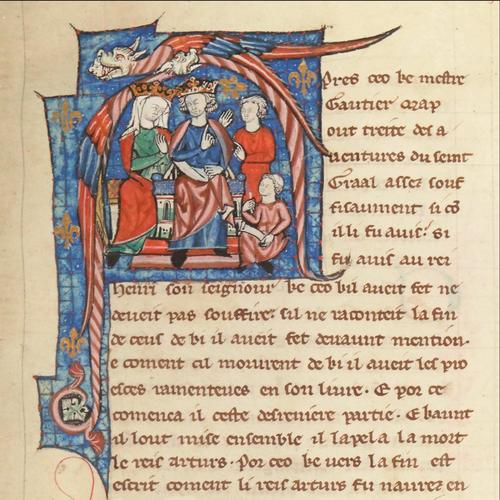 Pres ceo ke mestre
Gautier Map
out treite des a
ventures du seint
Graal assez souf
fisaument si cō
il li fu auis: si
fu auis au rei
henri son seignour ke ceo kil aueit fet ne
deueit pas souffire: sil ne raconteit la fin
de ceus de ki il aueit deuaunt mention
e coment cil morurent de ki il aueit les pro
esces ramenteues en son liure. E por ce
comenca il ceste desreniere partie. E kaunt
il lout mise ensemble il lapela la mort
le reis arturs. Por ceo ke uers la fin est
escrit coment li reis arturs fu naurez en